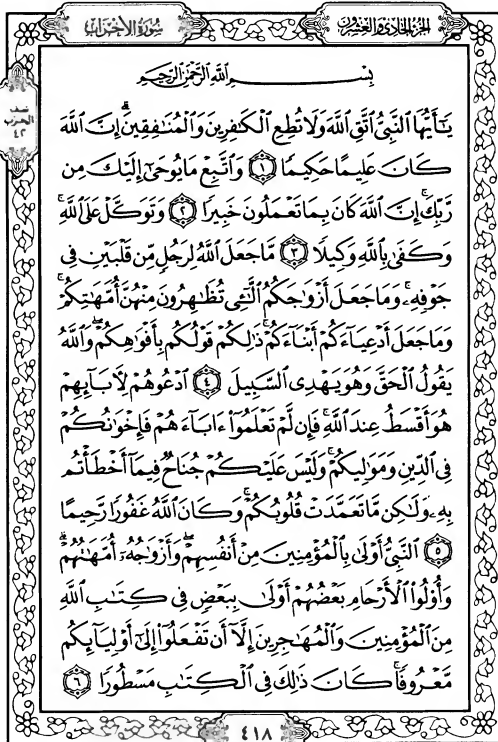 سُورَةُ الأَحْزَابِ
الجُزْءُ الحَادِي وَالعِشْرُونَ
نصف
الحزب
٤٢
بِسْمِ ٱللَّهِ ٱلرَّحْمَٰنِ ٱلرَّحِيمِ
يَٰٓأَيُّهَا ٱلنَّبِىُّ ٱتَّقِ ٱللَّهَ وَلَا تُطِعِ ٱلْكَٰفِرِينَ وَٱلْمُنَٰفِقِينَۗ إِنَّ ٱللَّهَ
كَانَ عَلِيمًا حَكِيمًا ١ وَٱتَّبِعْ مَا يُوحَىٰٓ إِلَيْكَ مِن
رَّبِّكَۚ إِنَّ ٱللَّهَ كَانَ بِمَا تَعْمَلُونَ خَبِيرًا ٢ وَتَوَكَّلْ عَلَى ٱللَّهِۚ
وَكَفَىٰ بِٱللَّهِ وَكِيلًا ٣ مَّا جَعَلَ ٱللَّهُ لِرَجُلٍ مِّن قَلْبَيْنِ فِى
جَوْفِهِۦۚ وَمَا جَعَلَ أَزْوَٰجَكُمُ ٱلَّٰٓـِٔى تُظَٰهِرُونَ مِنْهُنَّ أُمَّهَٰتِكُمْۚ
وَمَا جَعَلَ أَدْعِيَآءَكُمْ أَبْنَآءَكُمْۚ ذَٰلِكُمْ قَوْلُكُم بِأَفْوَٰهِكُمْۖ وَٱللَّهُ
يَقُولُ ٱلْحَقَّ وَهُوَ يَهْدِى ٱلسَّبِيلَ ٤ ٱدْعُوهُمْ لِـَٔابَآئِهِمْ
هُوَ أَقْسَطُ عِندَ ٱللَّهِۚ فَإِن لَّمْ تَعْلَمُوٓا۟ ءَابَآءَهُمْ فَإِخْوَٰنُكُمْ
فِى ٱلدِّينِ وَمَوَٰلِيكُمْۚ وَلَيْسَ عَلَيْكُمْ جُنَاحٌ فِيمَآ أَخْطَأْتُم
بِهِۦ وَلَٰكِن مَّا تَعَمَّدَتْ قُلُوبُكُمْۚ وَكَانَ ٱللَّهُ غَفُورًا رَّحِيمًا
٥ ٱلنَّبِىُّ أَوْلَىٰ بِٱلْمُؤْمِنِينَ مِنْ أَنفُسِهِمْۖ وَأَزْوَٰجُهُۥٓ أُمَّهَٰتُهُمْۗ
وَأُو۟لُوا۟ ٱلْأَرْحَامِ بَعْضُهُمْ أَوْلَىٰ بِبَعْضٍ فِى كِتَٰبِ ٱللَّهِ
مِنَ ٱلْمُؤْمِنِينَ وَٱلْمُهَٰجِرِينَ إِلَّآ أَن تَفْعَلُوٓا۟ إِلَىٰٓ أَوْلِيَآئِكُم
مَّعْرُوفًاۚ كَانَ ذَٰلِكَ فِى ٱلْكِتَٰبِ مَسْطُورًا ٦
٤١٨